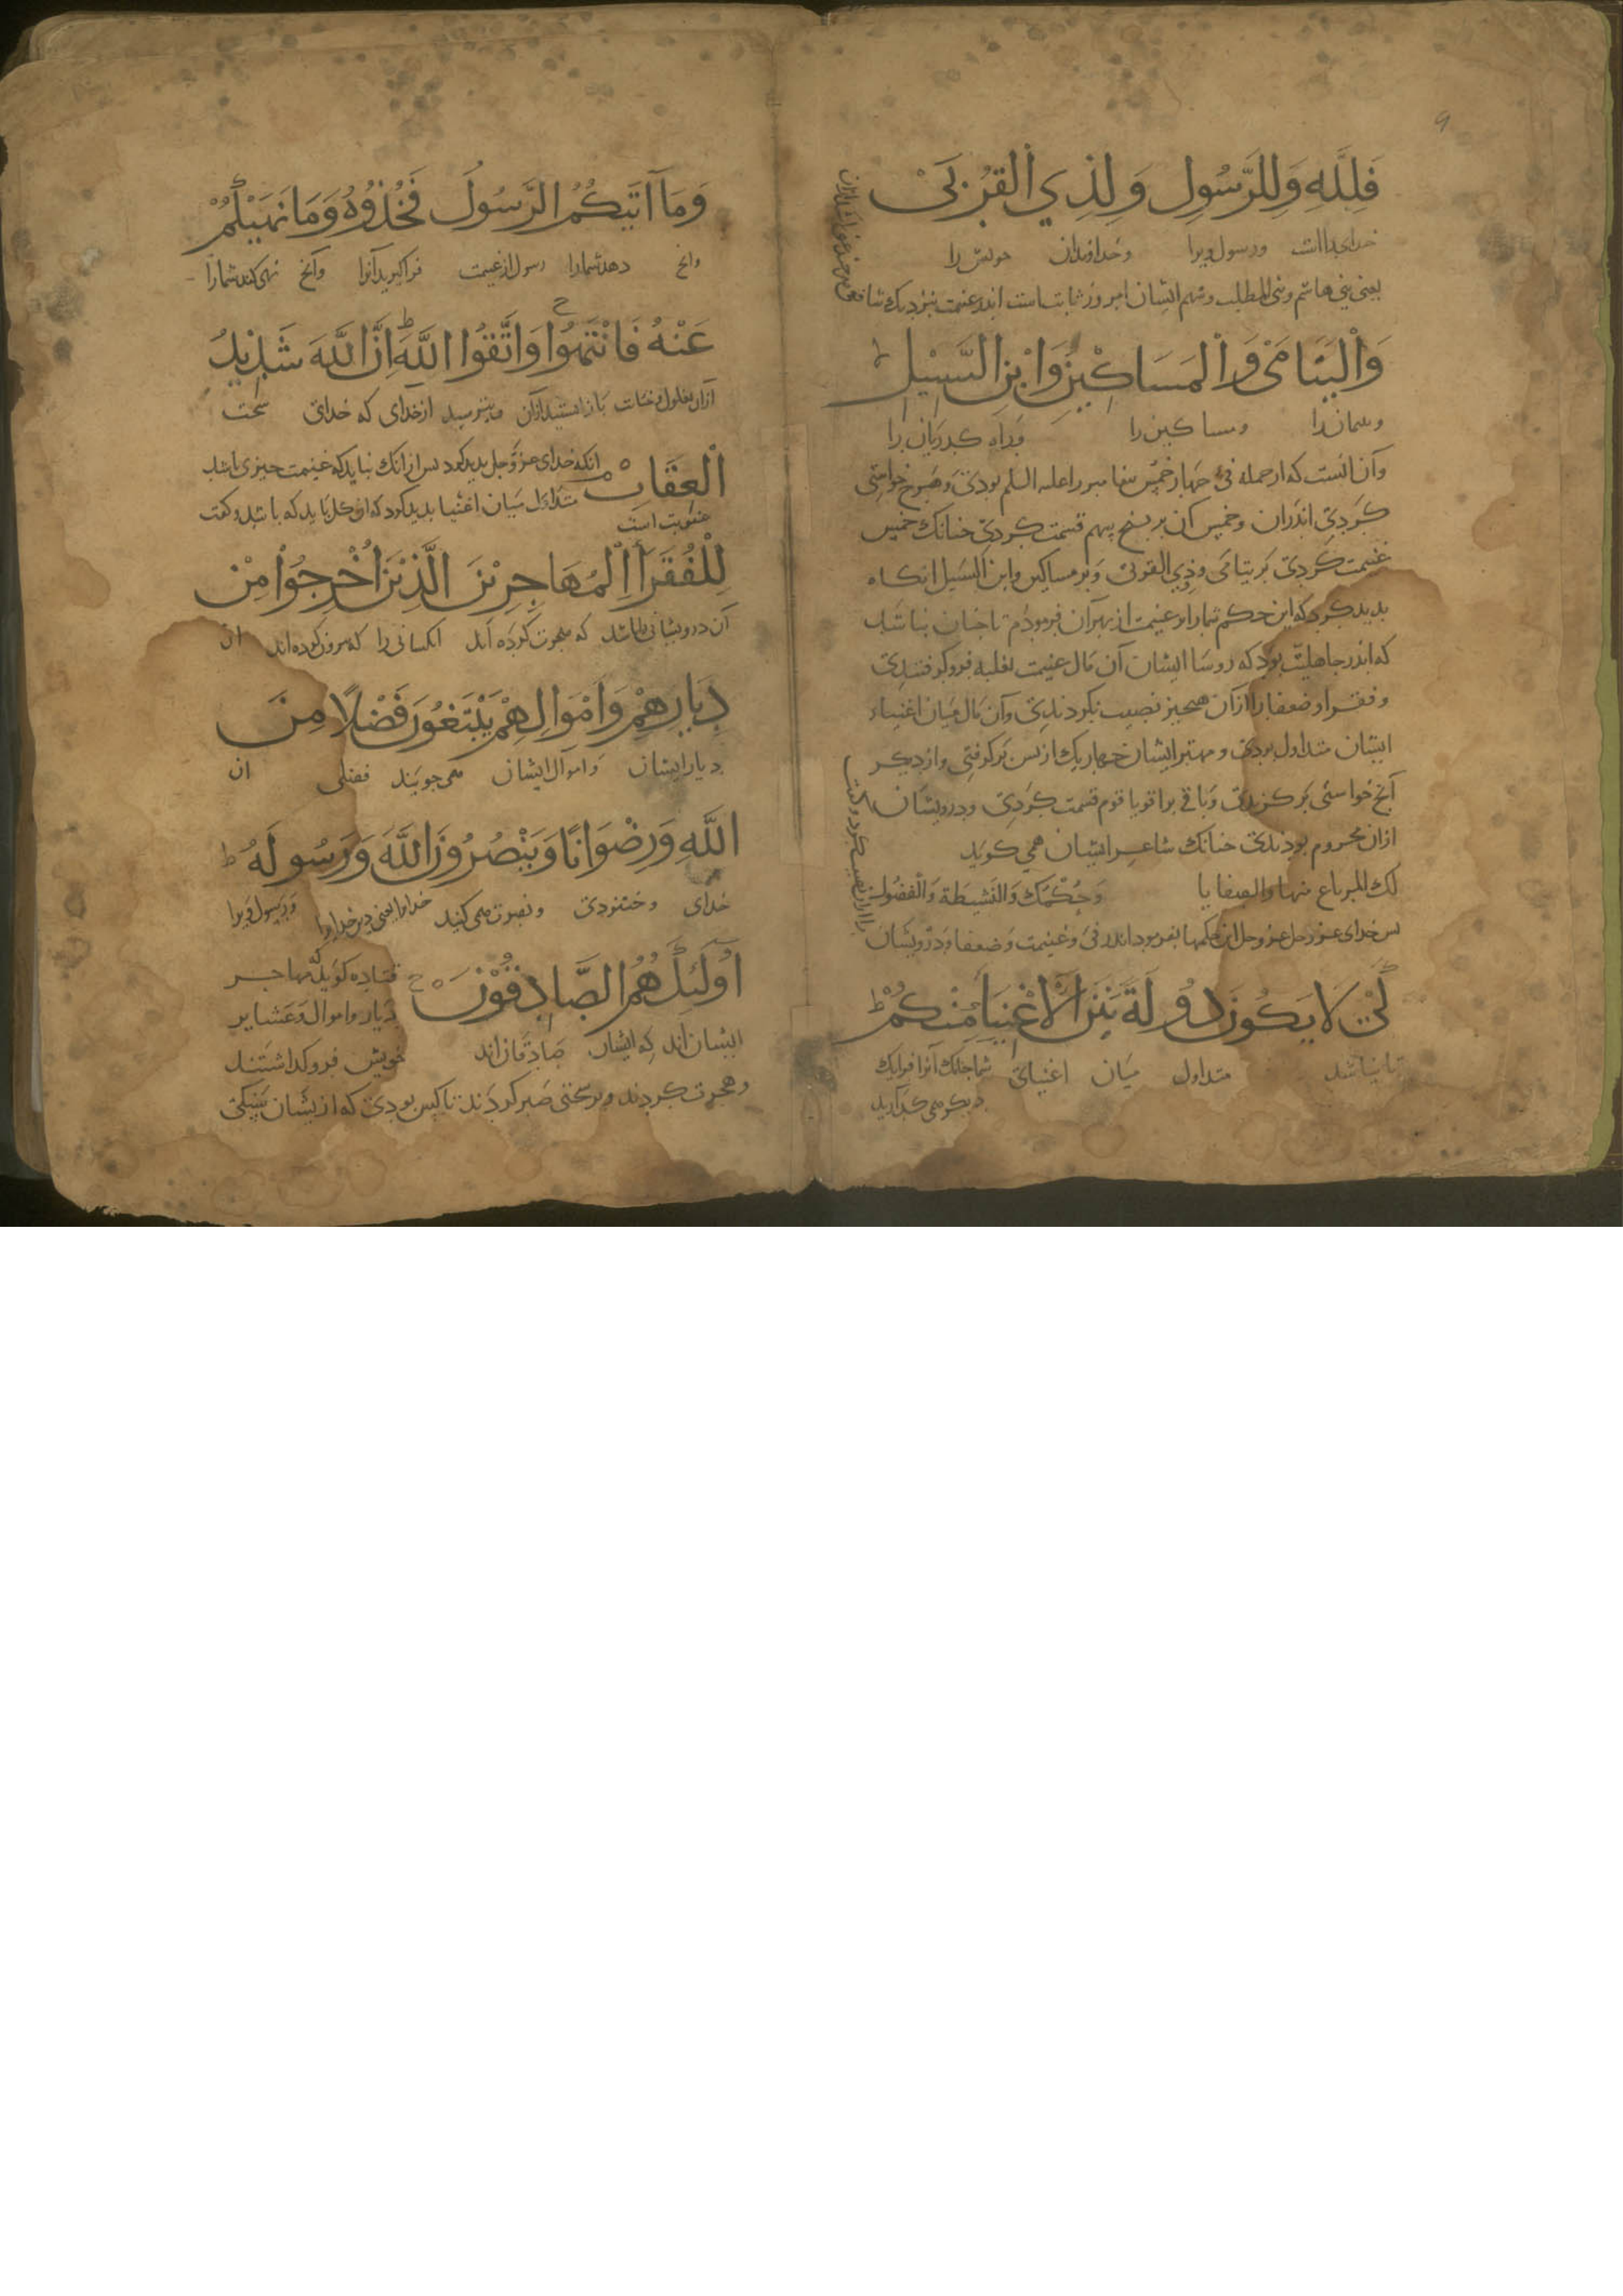 فَلِلَّهِ وَلِلرَّسُولِ وَلِذِي الْقُرْبَىْ
خدای را است ورسول ویرا وخداوندان خویش را
یعنی بنی هاشم وبنی المطلب وسهم ایشان امروز ثابت است اندر غنیمت بنزدیک شافعی
وَالْيَتَامَىْ وَالْمَسَاكِيْنِ وَابْنِ السَّبِيْلِ ط
ومساکین را وراه کذریان را
وآن آنست که از جمله فیء چهار خمس پیغامبر را علیه السلم بودی وهرچ خواستی
کردی اندران وخمس آن بر پنج سهم قسمت کردی چنانک خمس
غنیمت کردی بر یتامی وذی القربی وبر مساکین وابن السبیل آنکاه
بدید کرد که این حکم شما را در غنیمت از بهر آن فرمودم تا چنان نباشد
که اندر جاهلیت بود که روسا ایشان آن مال غنیمت بغلبه فرو کرفتندی
وفقرا وضعفا را ازان هیچیز نصیب نکردندی وآن مال میان اغنیاء
ایشان متداول بودی ومهتر ایشان چهار یک از پس بر کرفتی واز دیکر
آنچ خواستی بر کزیدی وباقی بر اقویا قوم قسمت کردی ودرویشان
ازان محروم بودندی چنانک شاعر ایشان همی کوید
لك المرباع منها والصفايا وَحُكْمُكَ وَالنَشِيطَة وَالْفضُول
پس خدای عز وجل این حکمها بفرمود اندر فیء وغنیمت وضعفا ودرویشان
كَيْ لَا يَكُونَ دُولَةً بَيْنَ الْأَغْنِيَاءِ مِنْكُمْ ط
تا نباشد متداول میان اغنیای شما
دیکر می کذارید
وَمَا آتَيكُمُ الرَّسُولُ فَخُذُوْهُ وَمَا نَهَيكُمْ
وآنچ دهد شما را رسول از غنیمت فرا کیرید آنرا وآنچ نهی کند شما را
عَنْهُ فَانْتَهُوْا وَاتَّقُوا اللَّهَ ط اِنَّ اللَّهَ شَدِيْدُ
ازان باز ایستید ازان وبترسید از خدای که خدای سخت
الْعِقَابِ ه انکه خدای عز وجل بدید کرد پس ازانک نباید که غنیمت چیزی باشد
عقوبت است متداول میان اغنیا بدید کرد که باید که باشد وکفت
لِلْفُقَرَاءِ الْمُهَاجِرِيْنَ الَّذِيْنَ اُخْرِجُوْا مِنْ
آن درویشانی را باشد که هجرت کرده اند انکسانی را که بیرون کرده اند از
دِيَارِهِمْ وَاَمْوَالِهِمْ يَبْتَغُوْنَ فَضْلًا مِنَ
دیار ایشان واموال ایشان می جویند فضلی از
اللَّهِ وَرِضْوَانًا وَيَنْصُرُوْنَ اللَّهَ وَرَسُولَهُ ط
خدای وخشنودی ونصرت می کنند خدا را یعنی دین خدا را ورسول ویرا
اُولَئِكَ هُمُ الصَّادِقُوْنَ ه قتاده کوید مهاجر
دیار واموال وعشایر
ایشان اند که ایشان صادقان اند خویش فرو کذاشتند
وهجرت کردند وبر سختی صبر کردند تا کس بودی که از یشان